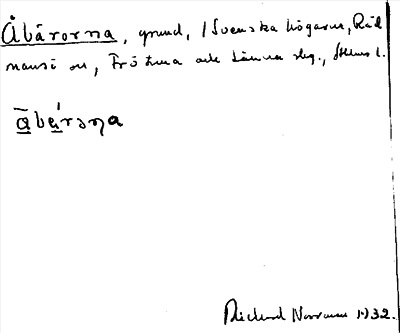 Åbårorna, grund, i Svenska högarna, Råd
mansö sn, Frötuna och Länna skg., Sthms l.
ābárəṇa
Rickard Norrman 1932.